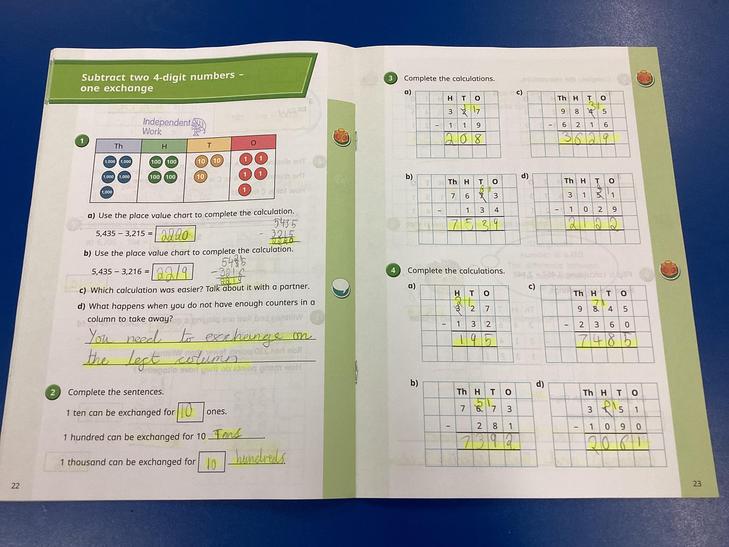 Subtract two 4-digit numbers –
one exchange
Independent
Work
1
Th H T O
1,000 1,000 100 100 10 10 1 1
1,000 1,000 100 100 10 1 1
1,000 1
a) Use the place value chart to complete the calculation.
5435
5,435 – 3,215 = 2220 - 3215
2220
b) Use the place value chart to complete the calculation.
5,435 – 3,216 = 2219
2219
c) Which calculation was easier? Talk about it with a partner.
d) What happens when you do not have enough counters in a
column to take away?
You need to exchange on
the left column
2 Complete the sentences.
1 ten can be exchanged for 10 ones.
1 hundred can be exchanged for 10 Tens
1 thousand can be exchanged for 10 hundreds
22
3 Complete the calculations.
a)
H T O
3 2 7
- 1 1 9
2 0 8
c)
Th H T O
9 8 4 5
- 6 2 1 6
3 6 2 9
b)
Th H T O
7 6 7 3
- 1 3 4
7 5 3 9
d)
Th H T O
3 1 5 1
- 1 0 2 9
2 1 2 2
4 Complete the calculations.
a)
H T O
3 2 7
- 1 3 2
1 9 5
c)
Th H T O
9 8 4 5
- 2 3 6 0
7 4 8 5
b)
Th H T O
7 6 7 3
- 2 8 1
7 3 9 2
d)
Th H T O
3 1 5 1
- 1 0 9 0
2 0 6 1
23